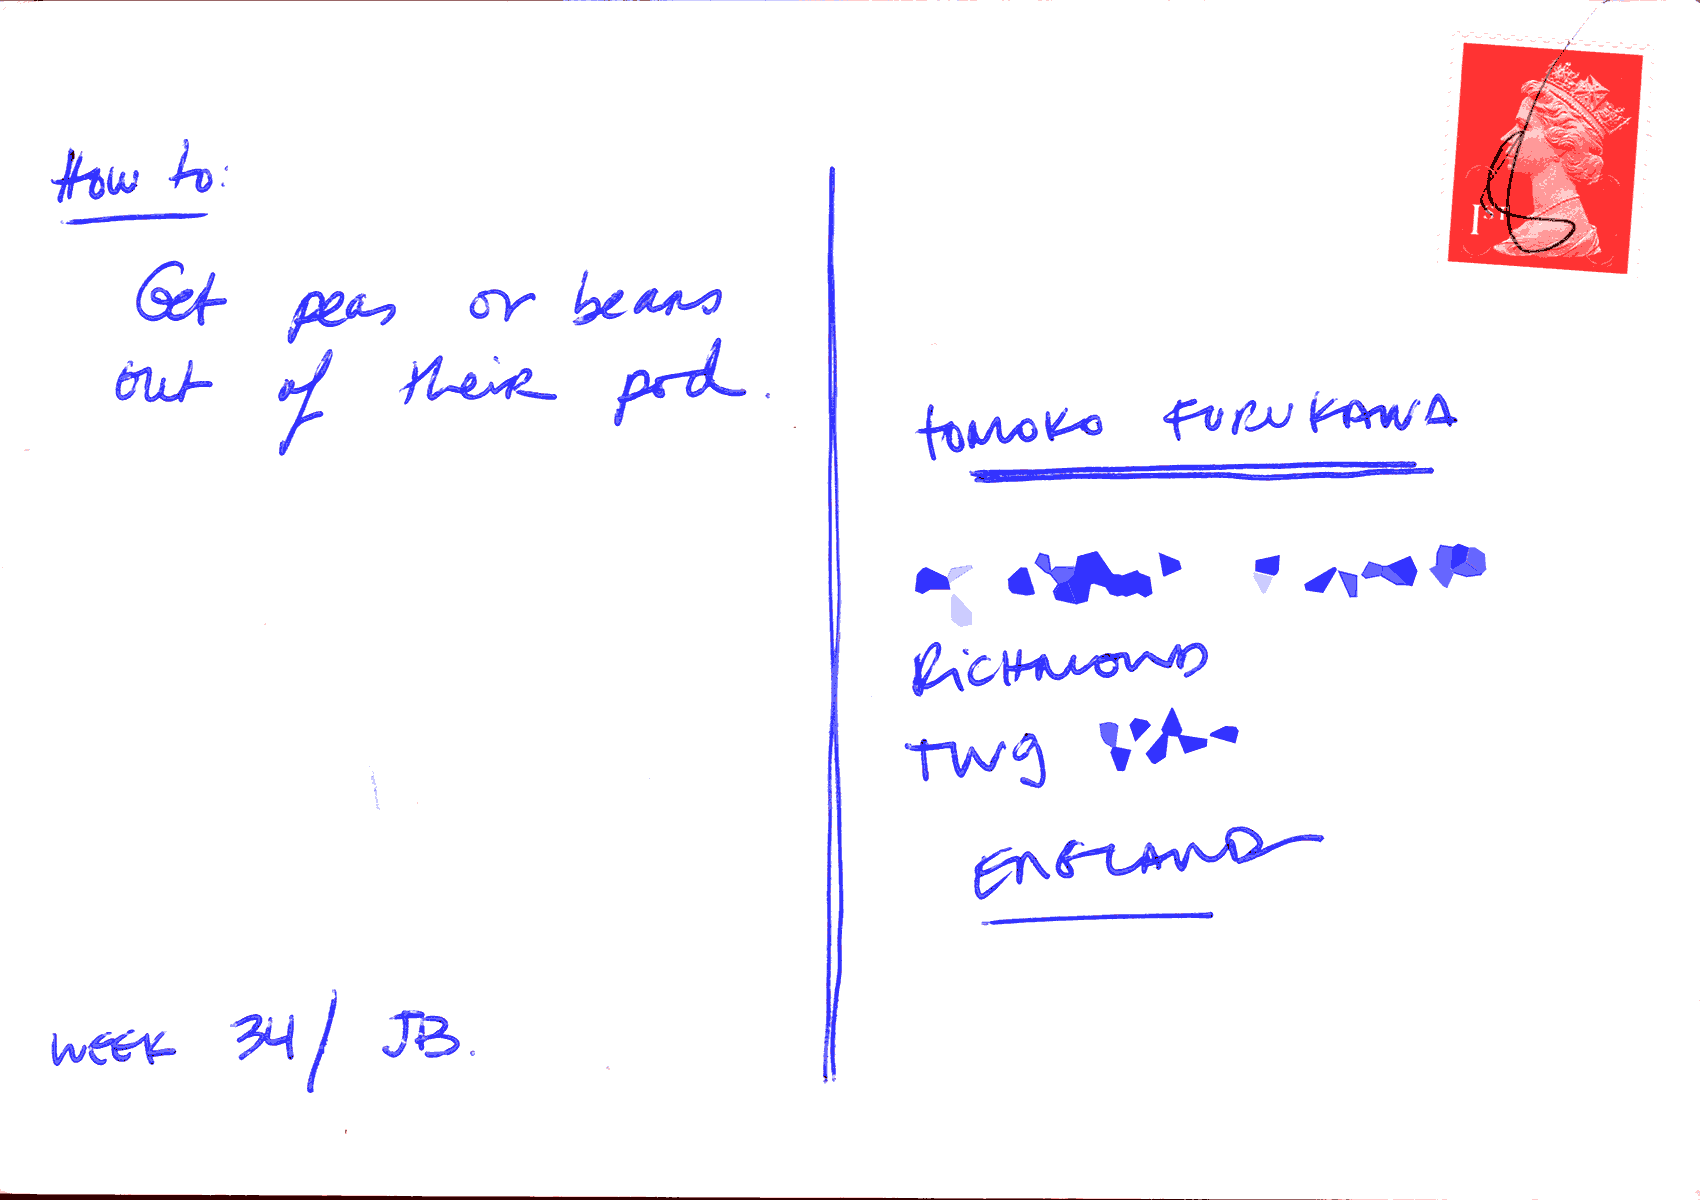 How to:
Get peas or beans
out of their pod.
WEEK 34/ JB.
1ST
TOMOKO FURUKAWA
RICHMOND
TW9
ENGLAND